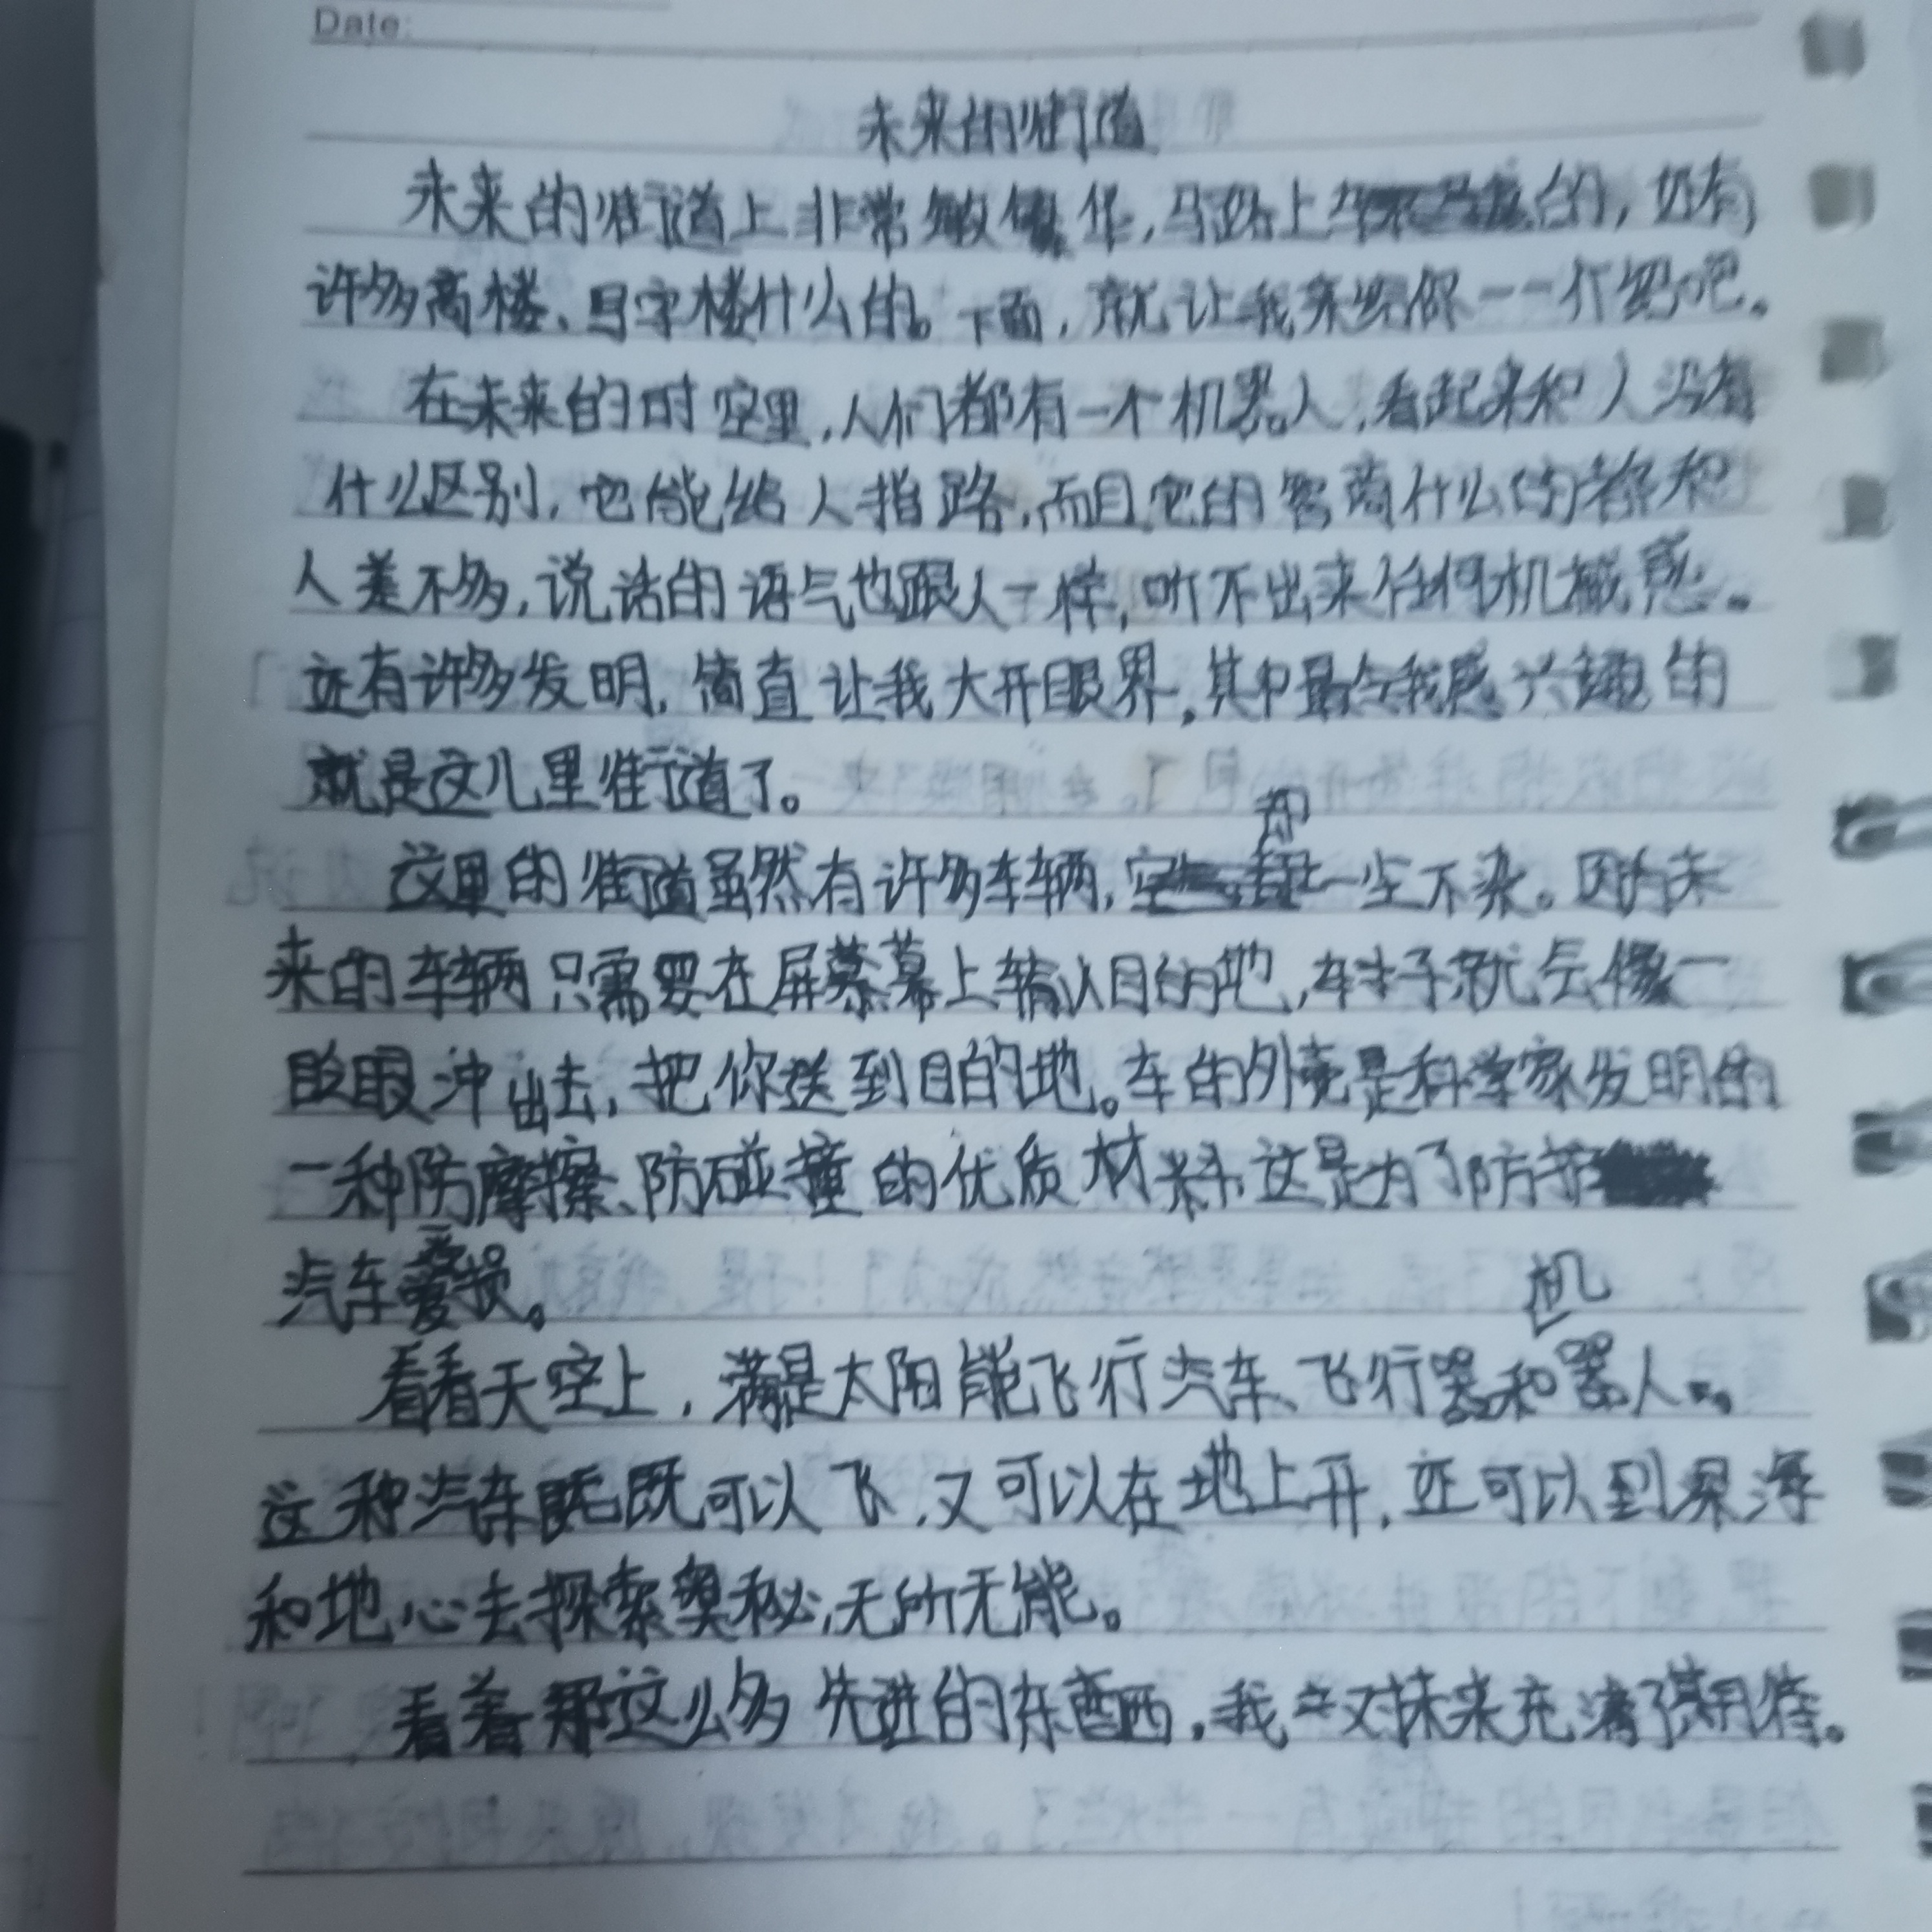 Date:
未来的街道
未来的街道上非常繁华,马路上的,还有
许多高楼、写字楼什么的。下面,就让我来给你一一介绍吧。
在未来的时空里,人们都有一个机器人,看起来和人没有
什么区别,它能给人指路,而且它的容貌什么的都和
人差不多,说话的语气也跟人一样,听不出来任何机械感。
还有许多发明,简直让我大开眼界,其中最令我感兴趣的
就是这儿里街道了。
这里的街道虽然有许多车辆,却一尘不染。因为未
来的车辆只需要在屏幕幕上输入目的地,车子就会像一
眨眼冲出去,把你送到目的地。车的外壳是科学家发明的
一种防摩擦、防碰撞的优质材料,这是为了防
汽车受损。
看看天空上,满是太阳能飞行汽车、飞行器和机器人。
这种汽车既既可以飞,又可以在地上开,还可以到深海
和地心去探索奥秘,无所无能。
看着那这么多先进的东西,我对未来充满了期待。